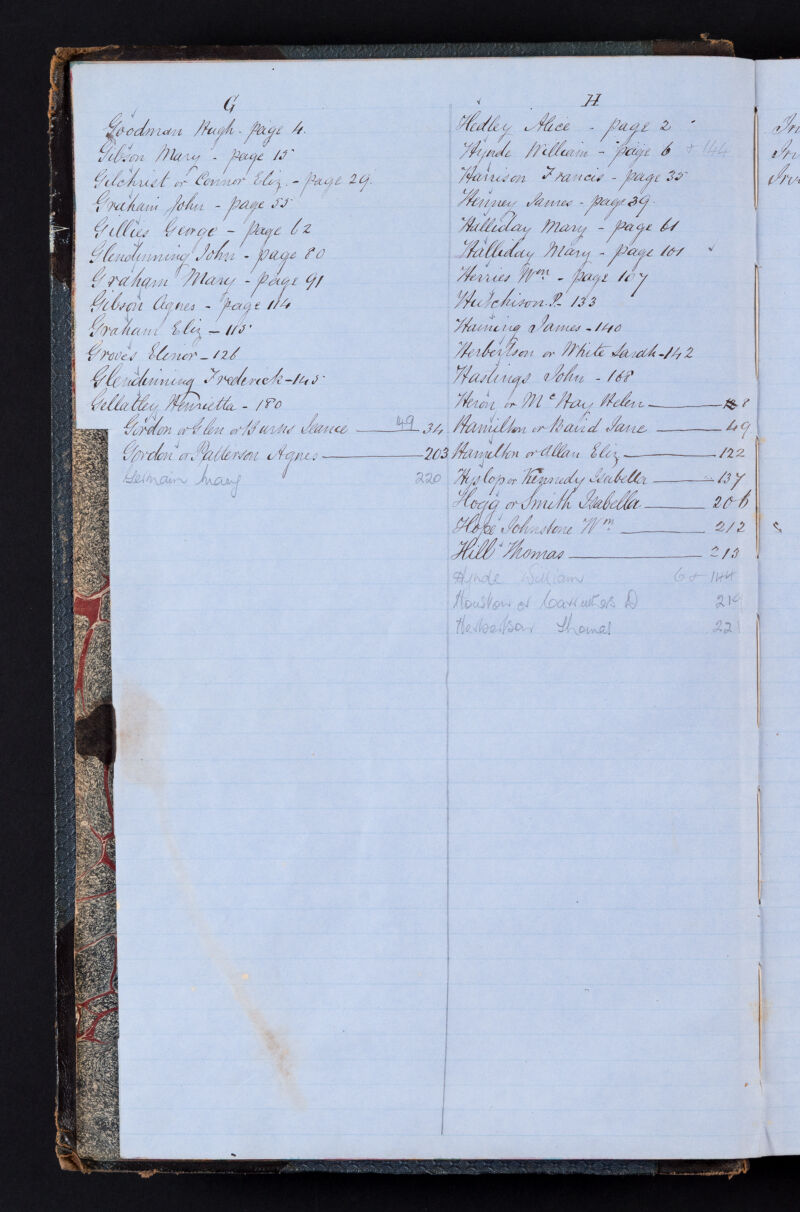 G
Goodman Hugh - page 4.
Gibson Mary - page 15
Gilchrist or Connor Eliz. - page 29.
Graham John - page 55
Gillies George - page 62
Glendinning John - page 80
Graham Mary - page 91
Gibson Agnes - page 114
Graham Eliz - 115
Groves Elenor - 126
Glendinning Frederick - 145
Gellatley Henrietta - 180
Gordon or Glen or Burns Jeance 49 34
Gordon or Patterson Agnes 203
Germain Mary 220
H
Hedley Alice - page 2
Hynde William - page 6 & 144
Harrison Francis - page 35
Henney James - page 39.
Halliday Mary - page 61
Halliday Mary - page 101
Herries Wm - page 107
Hutchison P. 133
Haining James - 140
Herbertson or White Sarah - 142
Hastings John - 168
Heron or McHay Helen 8
Hamilton or Baird Jane 49
Hamilton or Allan Eliz 122
Hyslop or Kennedy Isabella 137
Hogg or Smith Isabella 206
Hope Johnstone Wm 212
Hill Thomas 213
Hynde William 6 & 144
Houston or Carruthers D 219
Herbertson Thomas 221